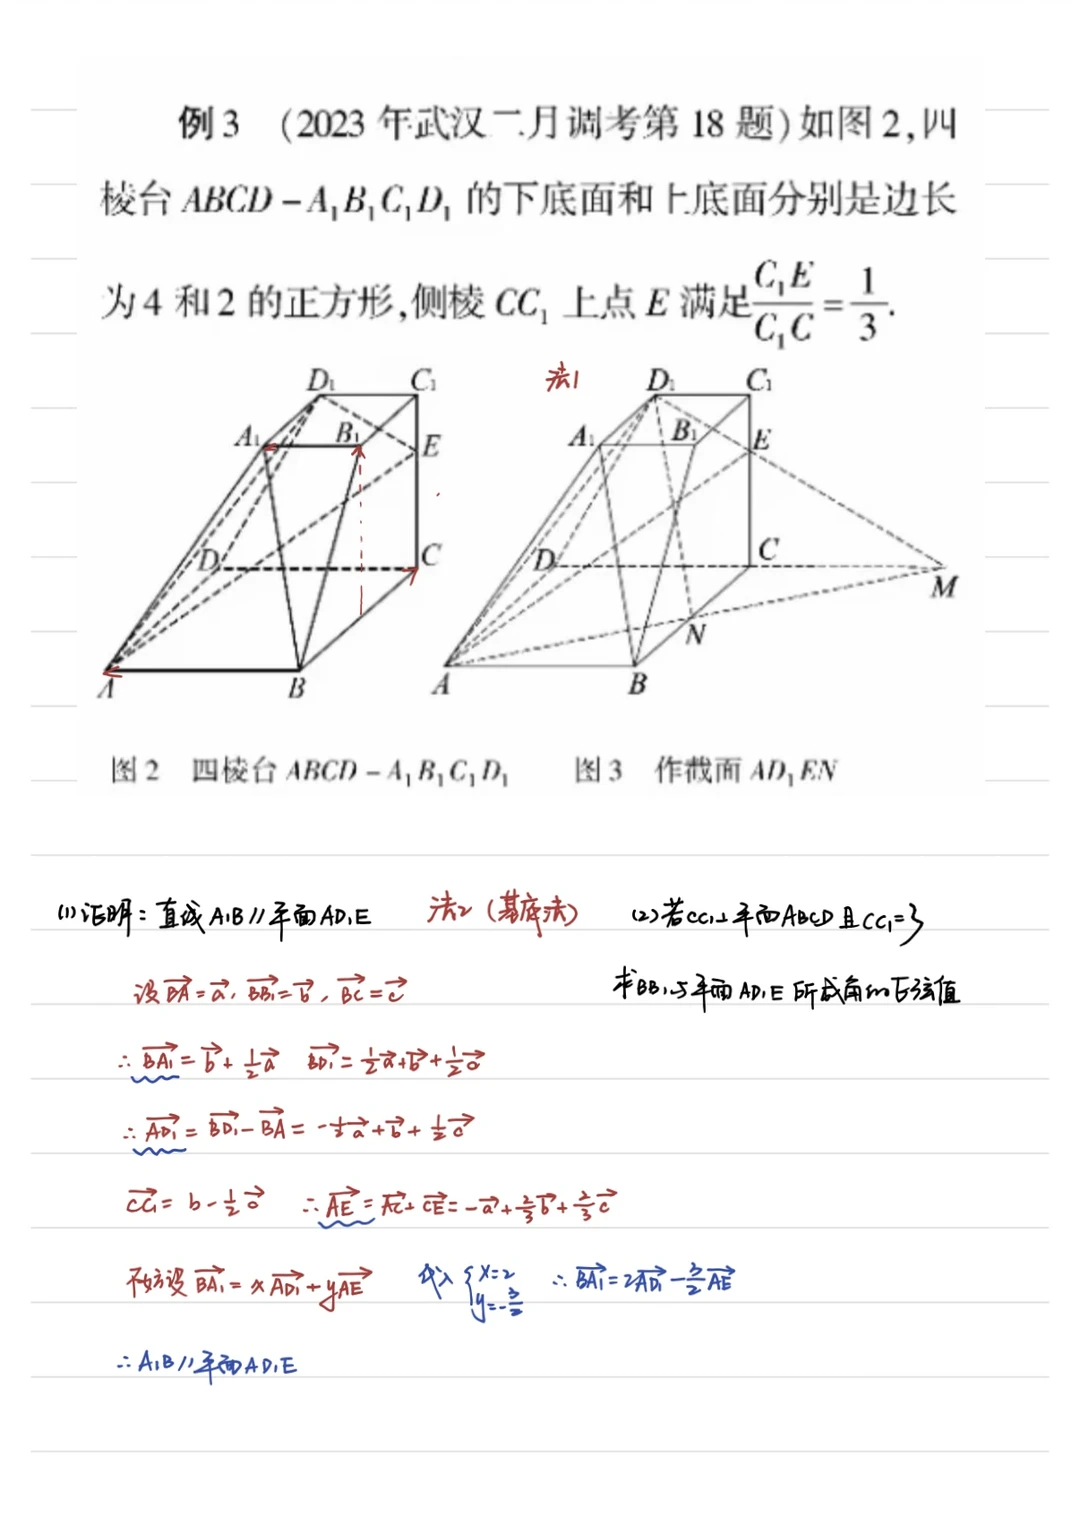 例3 (2023年武汉二月调考第18题)如图2,四
棱台ABCD-A₁B₁C₁D₁的下底面和上底面分别是边长
为4和2的正方形,侧棱CC₁上点E满足C₁E/C₁C=1/3.
法1
D₁ C₁ A₁ B₁ E D C A B
D₁ C₁ A₁ B₁ E D C M N A B
图2 四棱台ABCD-A₁B₁C₁D₁ 图3 作截面AD₁EN
(1)证明:直线A₁B//平面AD₁E 法2(基底法)
(2)若CC₁⊥平面ABCD且CC₁=3
求BB₁与平面AD₁E所成角的正弦值
设BA→=a→, BB₁→=b→, BC→=c→
∴BA₁→=b→+1/2a→ BD₁→=1/2a→+b→+1/2c→
∴AD₁→=BD₁→-BA→=-1/2a→+b→+1/2c→
CC₁→=b-1/2c→ ∴AE→=AC→+CE→=-a→+2/3b→+2/3c→
不妨设BA₁→=xAD₁→+yAE→ 代入{x=2 y=-3/2 ∴BA₁→=2AD₁→-3/2AE→
∴A₁B//平面AD₁E